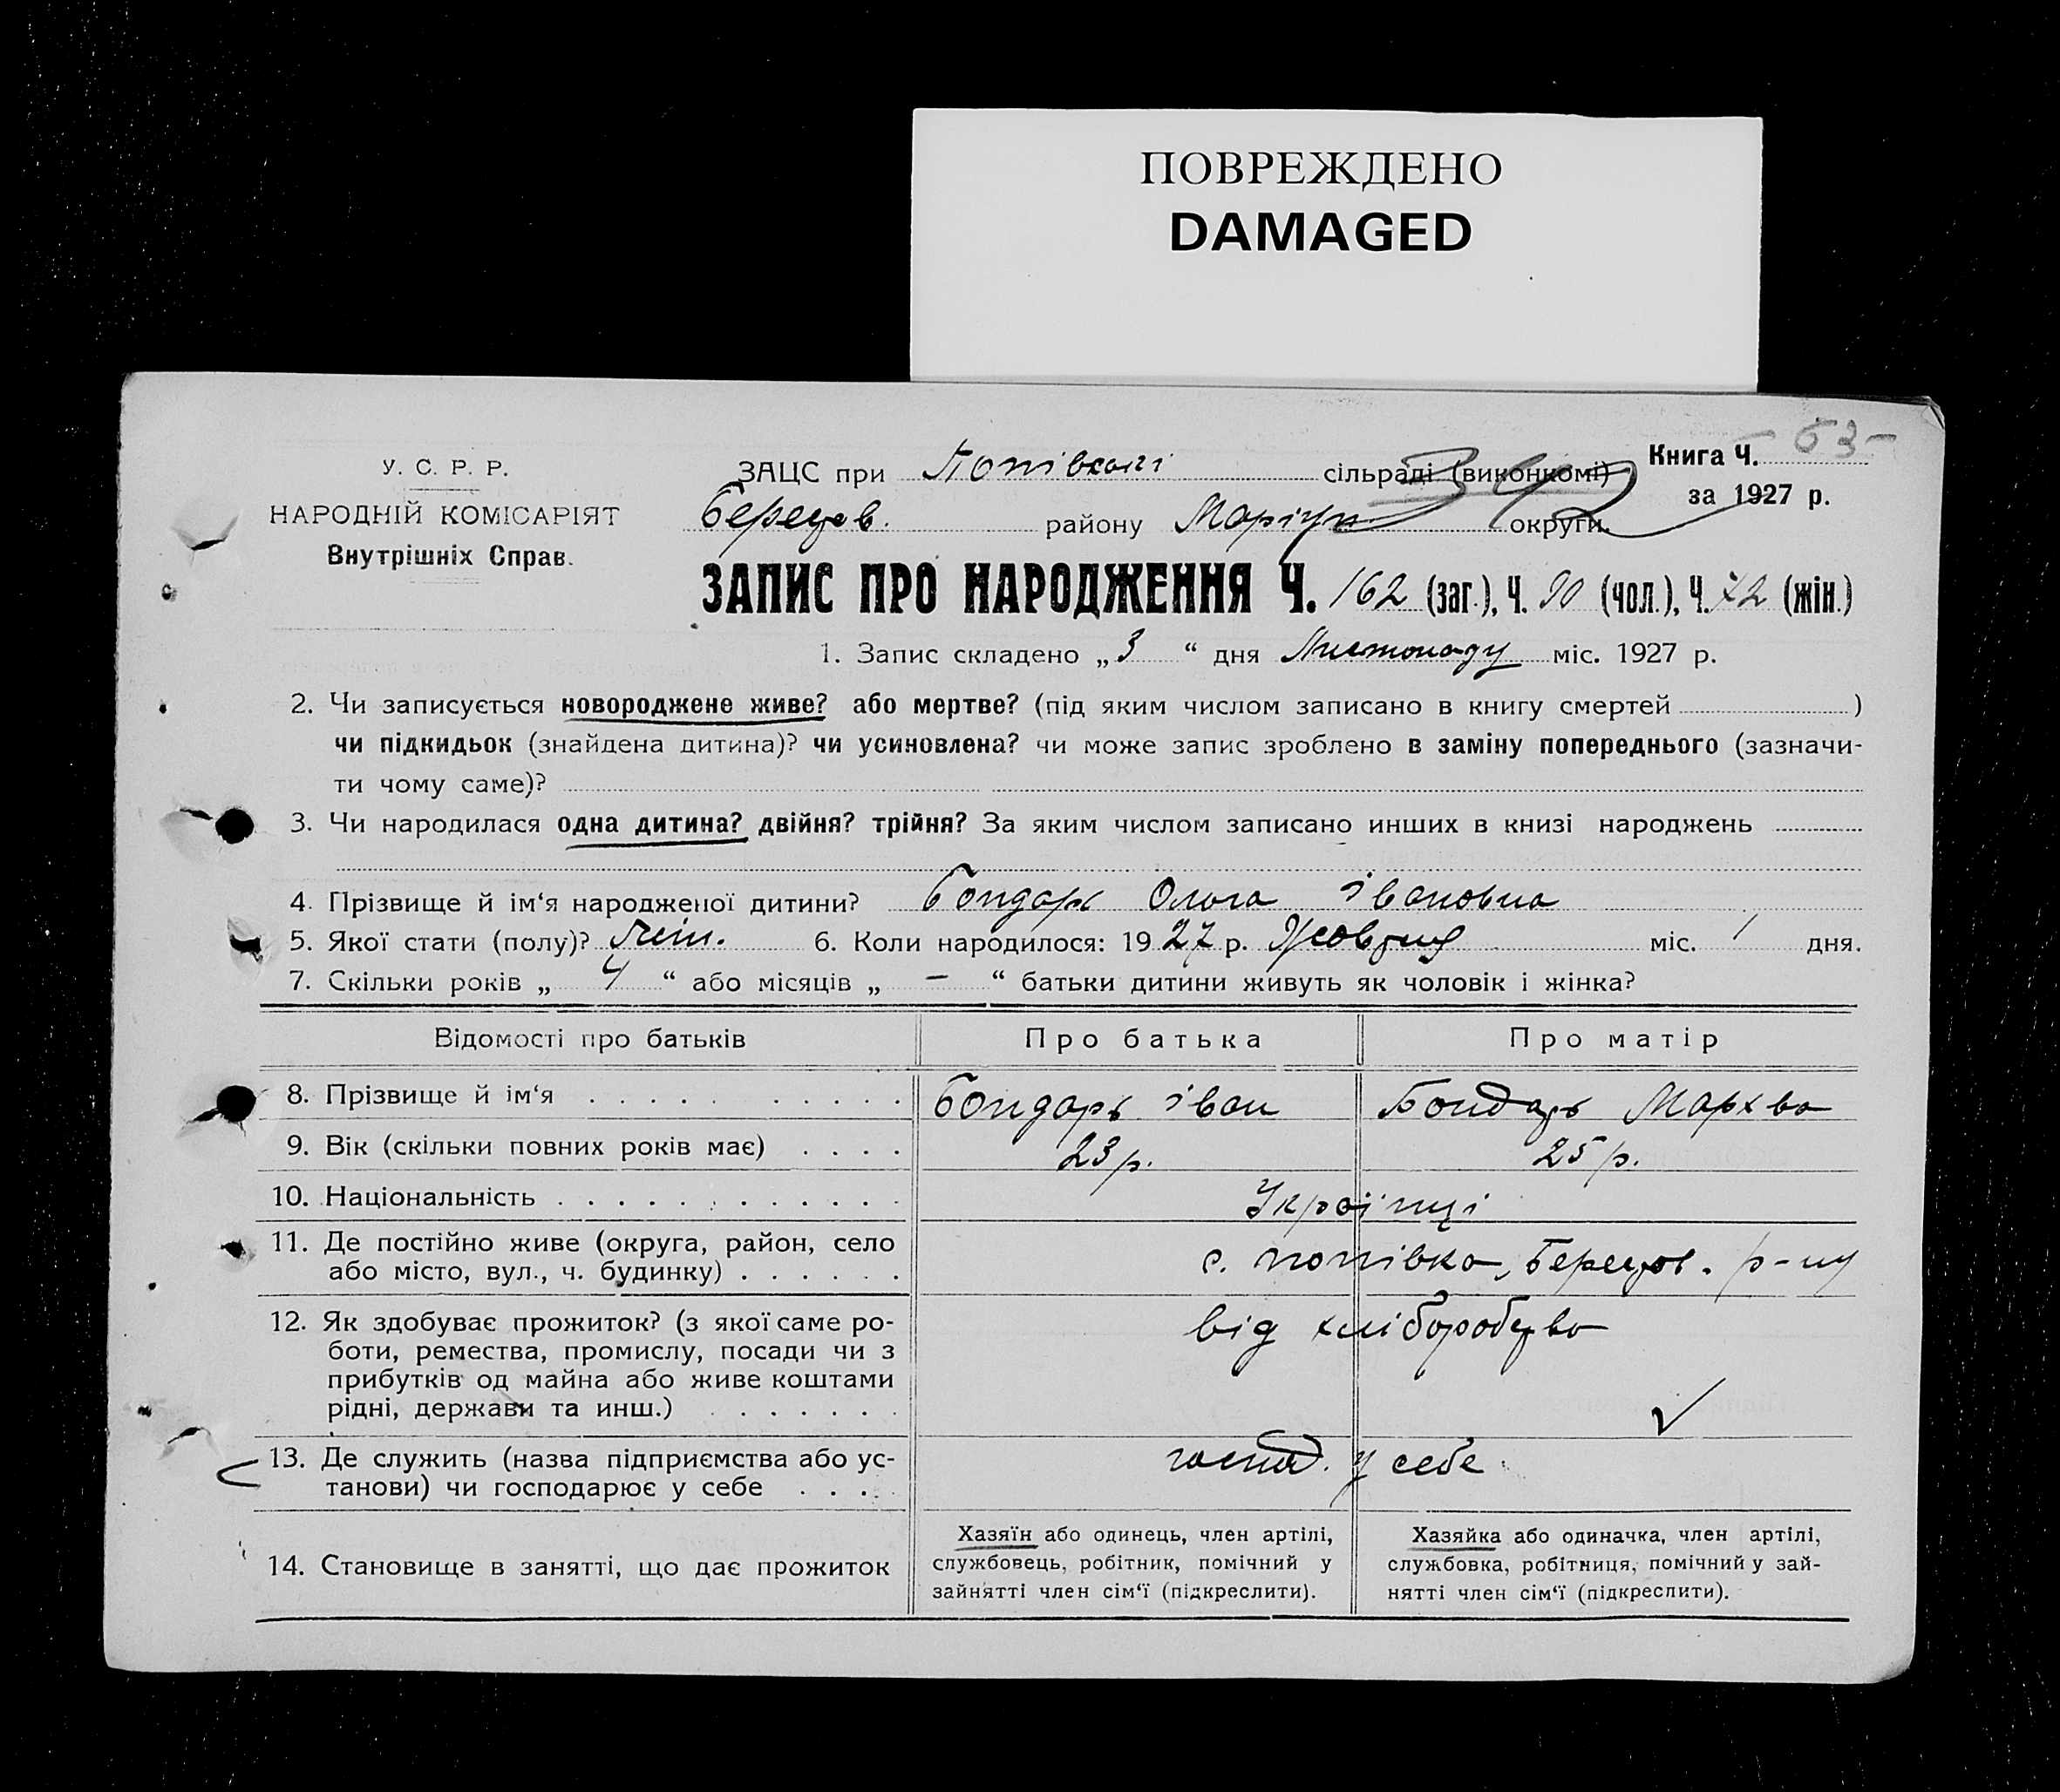 ПОВРЕЖДЕНО
DAMAGED
53
У. С. Р. Р.
НАРОДНІЙ КОМІСАРІЯТ
Внутрішніх Справ.
ЗАЦС при Попівській сільраді (виконкомі)
Книга Ч.
за 1927 р.
Берестов. району Маріуп округи.
ЗАПИС ПРО НАРОДЖЕННЯ Ч. 162 (заг.), Ч. 90 (чол.), Ч. 72 (жін.)
1. Запис складено „ 3 “ дня Листопаду міс. 1927 р.
2. Чи записується новороджене живе? або мертве? (під яким числом записано в книгу смертей )
чи підкидьок (знайдена дитина)? чи усиновлена? чи може запис зроблено в заміну попереднього (зазначи-
ти чому саме)?
3. Чи народилася одна дитина? двійня? трійня? За яким числом записано инших в книзі народжень
4. Прізвище й ім‘я народженої дитини? Бондарь Ольга Івановна
5. Якої стати (полу)? жін. 6. Коли народилося: 1927 р. Жовтня міс. 1 дня.
7. Скільки років „ 4 “ або місяців „ – “ батьки дитини живуть як чоловік і жінка?
Відомості про батьків Про батька Про матір
8. Прізвище й ім‘я Бондарь Іван Бондарь Мархва
9. Вік (скільки повних років має) 23 р. 25 р.
10. Національність Українці
11. Де постійно живе (округа, район, село
або місто, вул., ч. будинку) с. Попівка, Берестов. р-ну
12. Як здобуває прожиток? (з якої саме ро-
боти, ремества, промислу, посади чи з
прибутків од майна або живе коштами
рідні, держави та инш.) від хліборобства
13. Де служить (назва підприємства або ус-
танови) чи господарює у себе госпд. у себе
14. Становище в занятті, що дає прожиток
Хазяїн або одинець, член артілі,
службовець, робітник, помічний у
зайнятті член сім‘ї (підкреслити).
Хазяйка або одиначка, член артілі,
службовка, робітниця, помічний у зай-
нятті член сім‘ї (підкреслити).